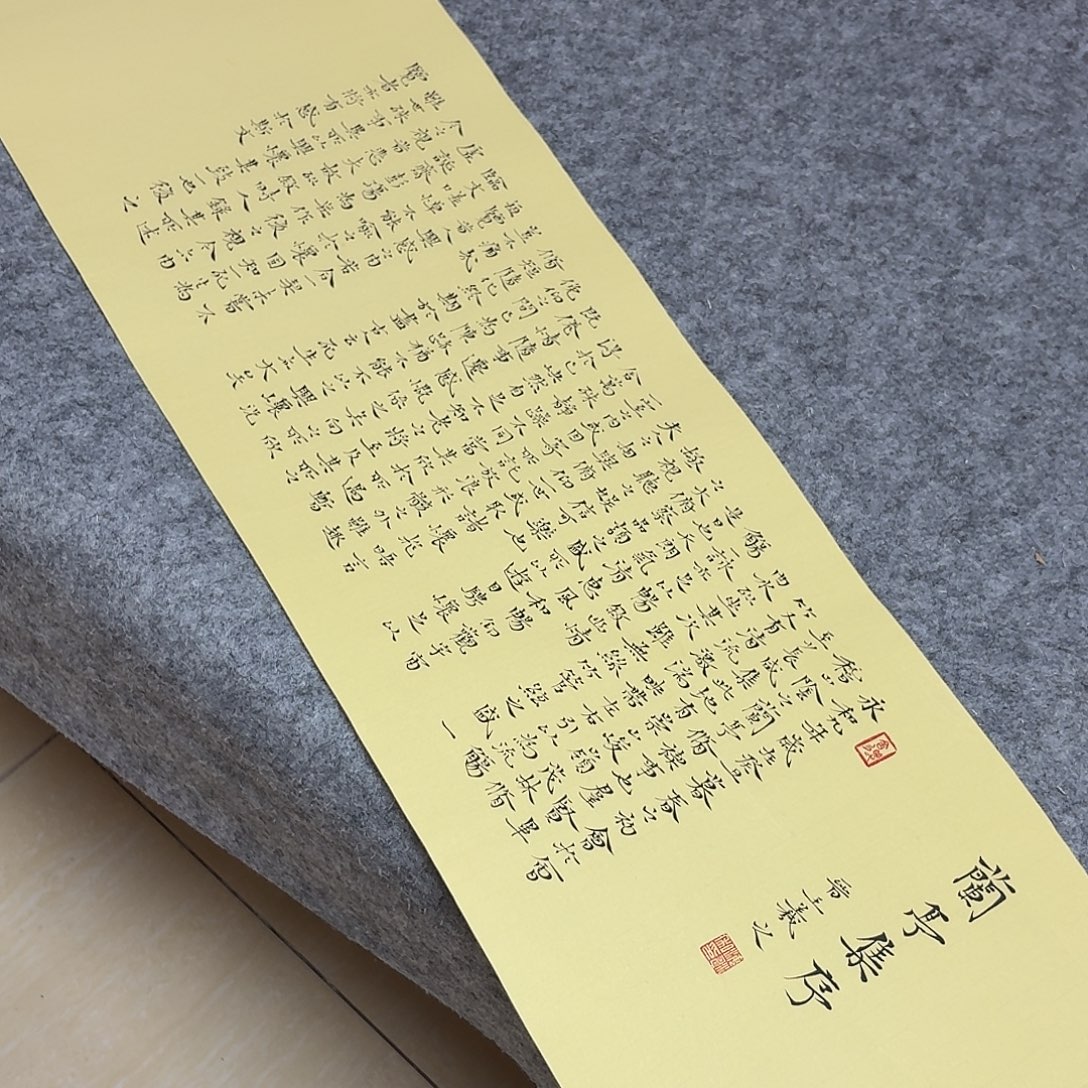 蘭亭集序
晉王羲之
永和九年歲在癸丑暮春之初會於會
稽山陰之蘭亭脩禊事也群賢畢
至少長咸集此地有崇山峻嶺茂林脩
竹又有清流激湍映帶左右引以為流觴
曲水列坐其次雖無絲竹管絃之盛一
觴一詠亦足以暢敘幽情
是日也天朗氣清惠風和暢仰觀宇宙
之大俯察品類之盛所以遊目騁懷足以
極視聽之娛信可樂也
夫人之相與俯仰一世或取諸懷抱悟言
一室之內或因寄所託放浪形骸之外雖趣
舍萬殊靜躁不同當其欣於所遇暫
得於己快然自足不知老之將至及其所之
既倦情隨事遷感慨係之矣向之所欣
俛仰之間已為陳跡猶不能不以之興懷況
脩短隨化終期於盡古人云死生亦大矣
豈不痛哉
每覽昔人興感之由若合一契未嘗不
臨文嗟悼不能喻之於懷固知一死生為
虛誕齊彭殤為妄作後之視今亦由
今之視昔悲夫故列敘時人錄其所述
雖世殊事異所以興懷其致一也後之
覽者亦將有感於斯文